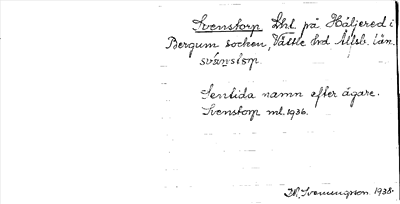 Svenstorp. Lht på Häljered i
Bergum socken, Vättle hd Älfsb. län.
svänstorp
Sentida namn efter ägare.
Svenstorp ml. 1936.
H. Svenungsson 1938.